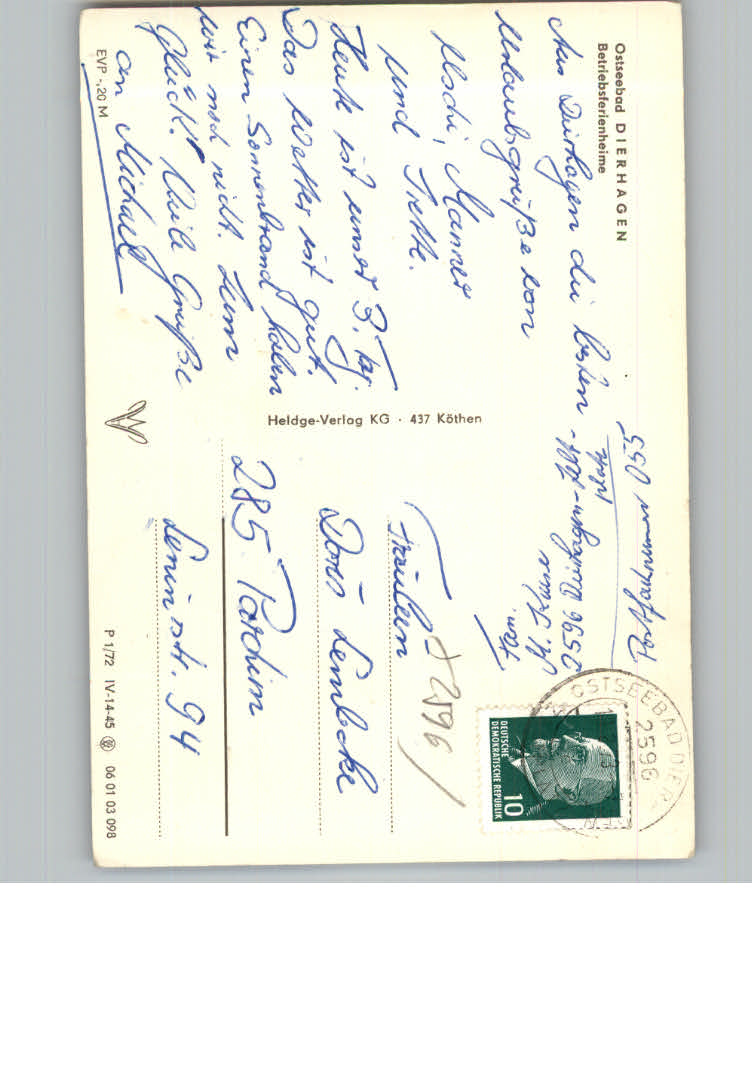 Ostseebad DIERHAGEN
Betriebsferienheime
Aus Dierhagen die besten
Urlaubsgrüße von
Uschi, Manner
und
Heute ist unser 3. Tag.
Das Wetter ist gut.
Einen Sonnenbrand haben
wir noch nicht. Zum
Glück! Viele Grüße
an Michael
EVP -,20 M
Heldge-Verlag KG · 437 Köthen
055
2596 Dierhagen-
Fräulein
Doris Lembcke
285 Parchim
Leninstr. 94
2596
OSTSEEBAD DIER
2596
DEUTSCHE
DEMOKRATISCHE REPUBLIK
10
P 1/72 IV-14-45 06 01 03 098